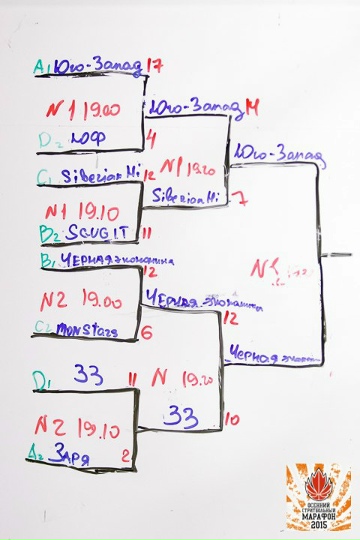 A1 Юго-Запад 17
N1 19.00
Юго-Запад 14
D2 ЮФ 4
Юго-Запад
C1 Siberian Mi 12
N1 19.20
Siberian Mi 7
N1 19.10
B2 SCUGIT 11
B1 ЧЕРНАЯ экономика 12
N2 19.00
ЧЕРНАЯ экономика 12
C2 MONSTARS 6
Черная
D1 33 11
N 19.20
33 10
N2 19.10
A2 ЗАРЯ 2
ОСЕННИЙ
СТРИТБОЛЬНЫЙ
МАРАФОН
2015